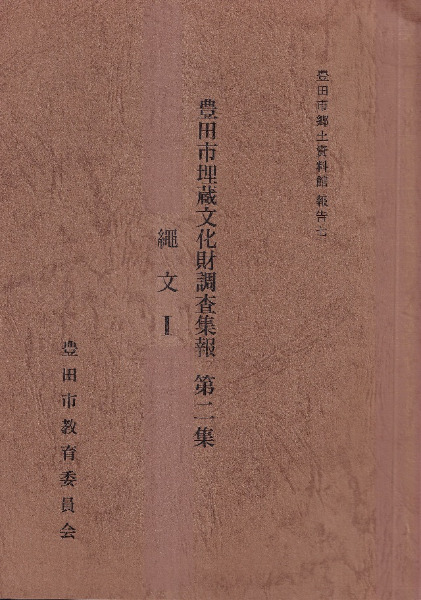 豊田市郷土資料館報告七
豊田市埋蔵文化財調査集報 第二集
縄文Ⅰ
豊田市教育委員会